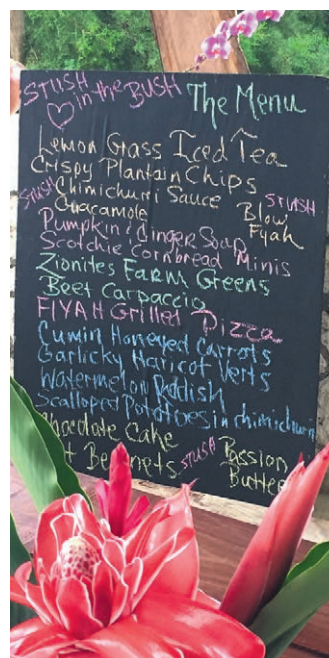 STUSH in the BUSH
The Menu
Lemon Grass Iced Tea
Crispy Plantain Chips
STUSH Chimichurri Sauce
Guacamole
STUSH Blow Fyah
Pumpkin & Ginger Soup
Scotchie Cornbread Minis
Zionites FARM Greens
Beet Carpaccio
FIYAH Grilled Pizza
Cumin Honeyed Carrots
Garlicky Haricot Verts
Watermelon Radish
Scalloped Potatoes in chimichurri
Chocolate Cake
STUSH Passion Butter